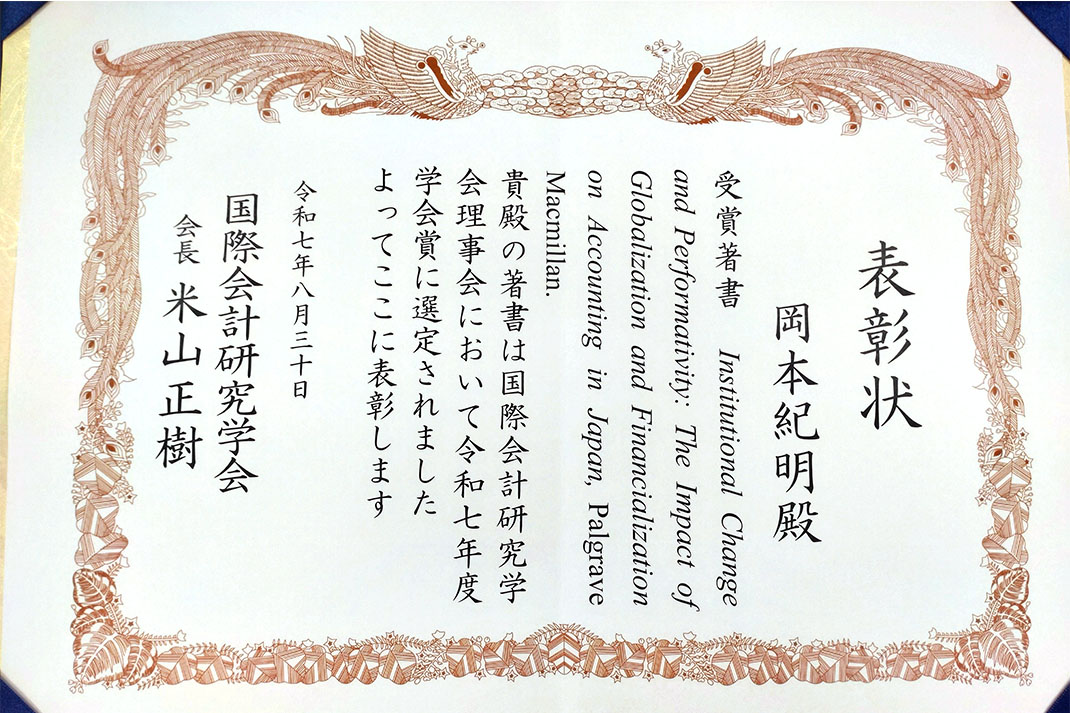 表彰状
岡本紀明殿
受賞著書 Institutional Change
and Performativity: The Impact of
Globalization and Financialization
on Accounting in Japan, Palgrave
Macmillan.
貴殿の著書は国際会計研究学
会理事会において令和七年度
学会賞に選定されました
よってここに表彰します
令和七年八月三十日
国際会計研究学会
会長 米山正樹